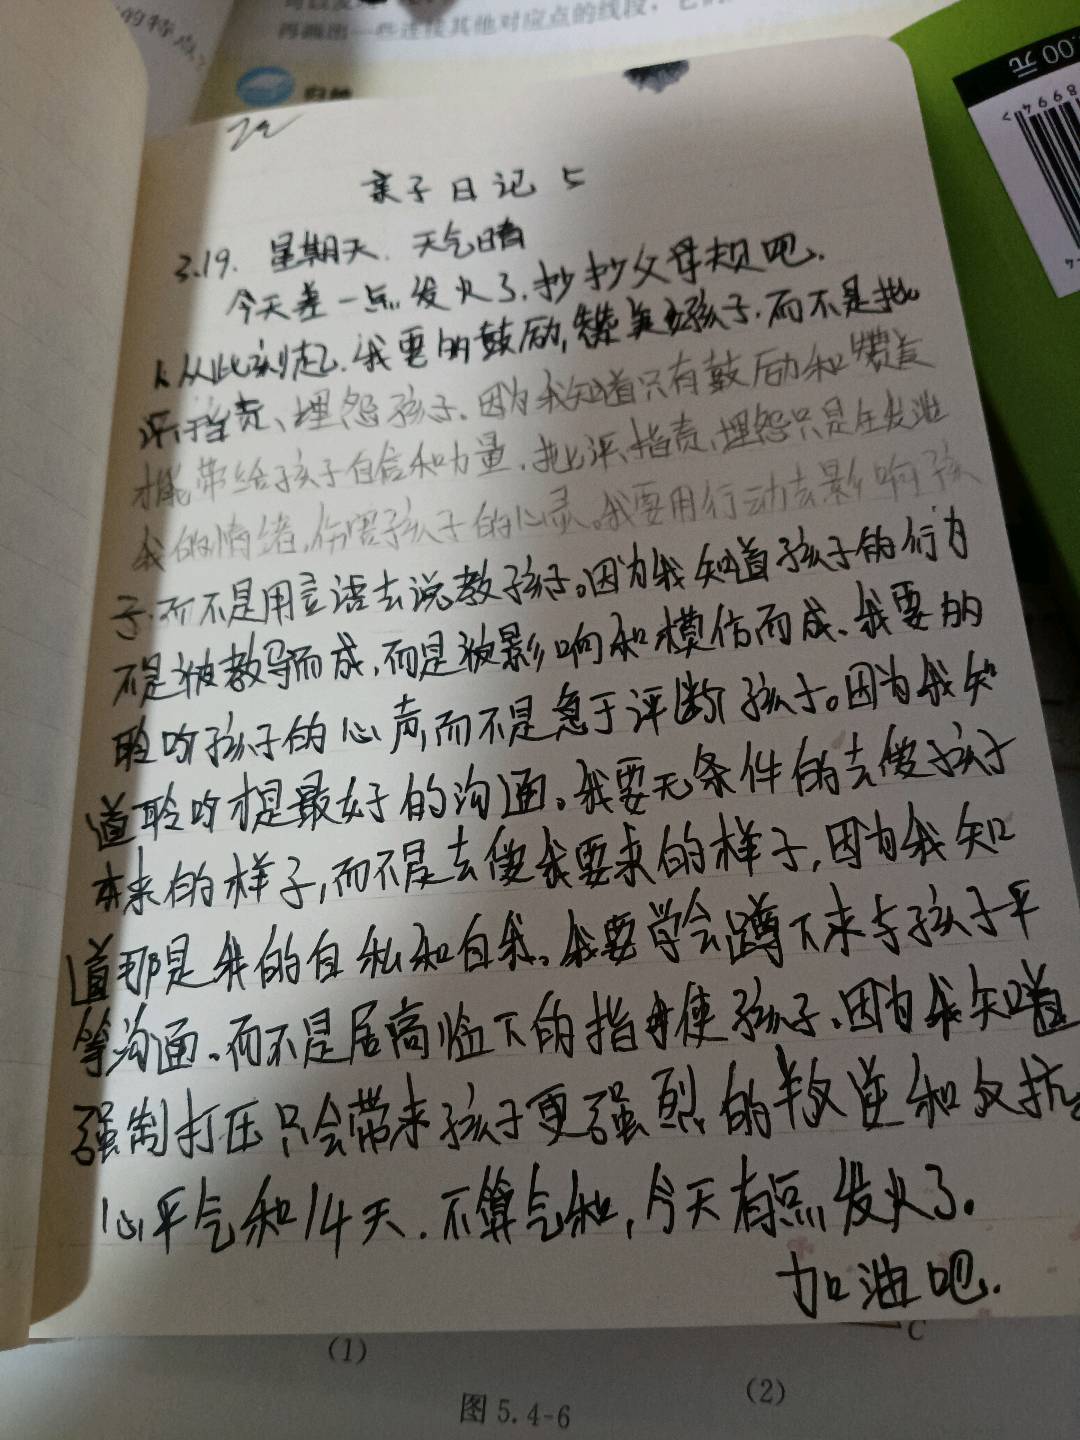 的特点?
再画出一些连接其他对应点的线段,
归纳
.00 元
8994>
亲子日记 5
3.19. 星期天. 天气晴
今天差一点发火了.抄抄父母规吧.
1.从此刻起.我要的鼓励,赞美孩子.而不是批
评指责、埋怨孩子.因为我知道只有鼓励和赞美
才能带给孩子自信和力量.批评、指责、埋怨只是在发泄
我的情绪,伤害孩子的心灵。我要用行动去影响孩
子.而不是用言语去说教孩子。因为我知道孩子的行为
不是被教导而成,而是被影响和模仿而成、我要的
聆听孩子的心声,而不是急于评断孩子。因为我知
道聆听才是最好的沟通。我要无条件的去使孩子
本来的样子,而不是去使我要求的样子,因为我知
道那是我的自私和自我、我要学会蹲下来与孩子平
等沟通.而不是居高临下的指使孩子.因为我知道
强制打压只会带来孩子更强烈的叛逆和反抗。
心平气和14天.不算气和,今天有点发火了.
加油吧.
C
(1)
(2)
图 5.4-6